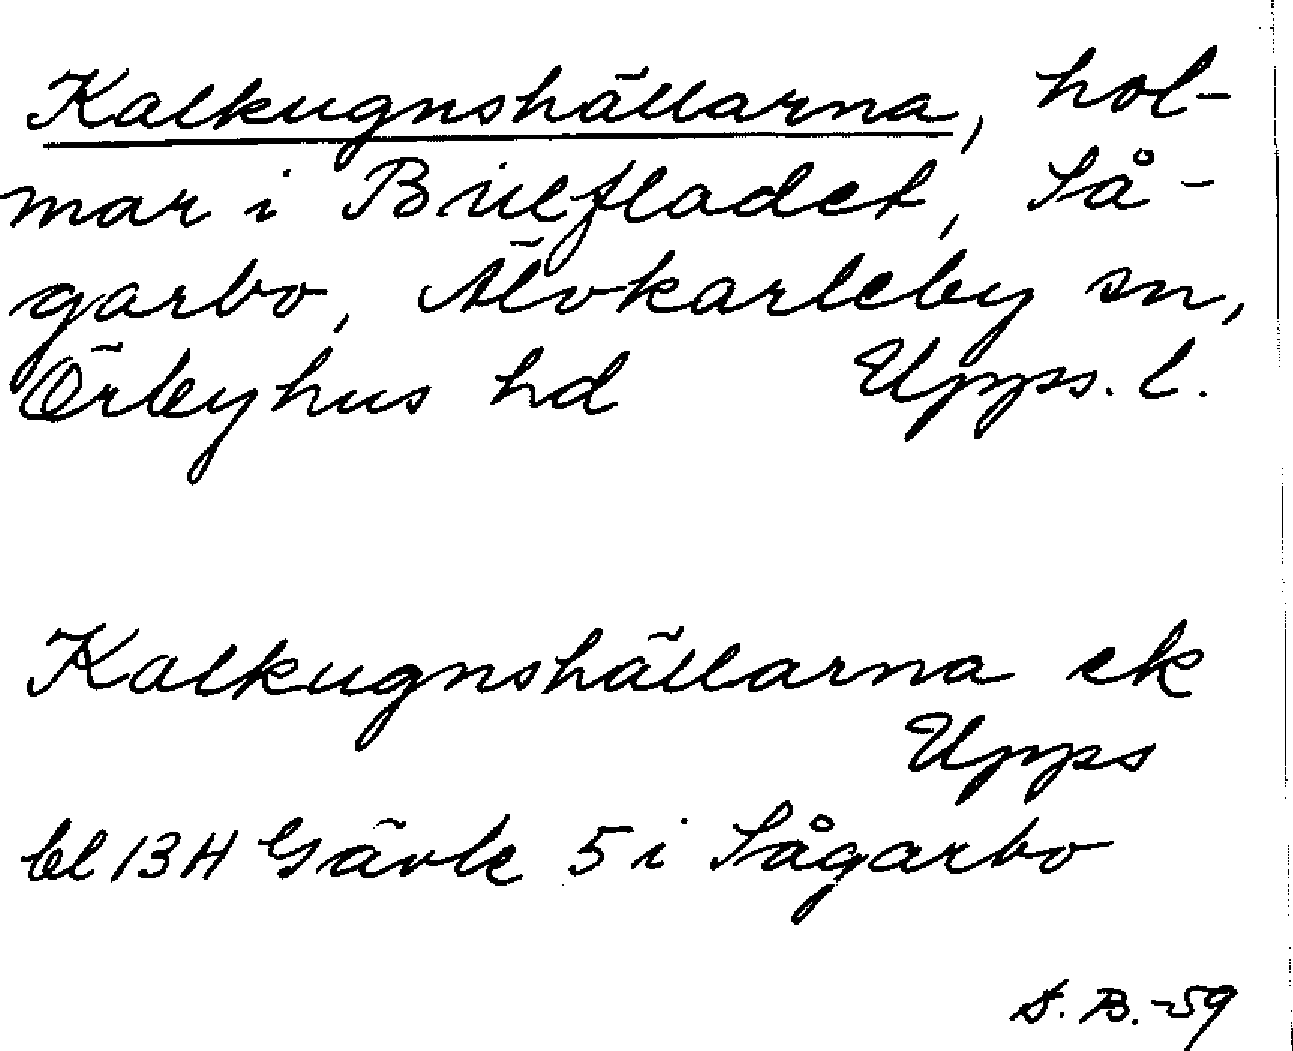 Kalkugnshällarna, hol-
mar i Billfladet, Så-
garbo, Älvkarleby sn,
Örbyhus hd Upps. l.
Kalkugnshällarna ek
Upps
bl 13H Gävle 5 i Sågarbo
S. B. -59